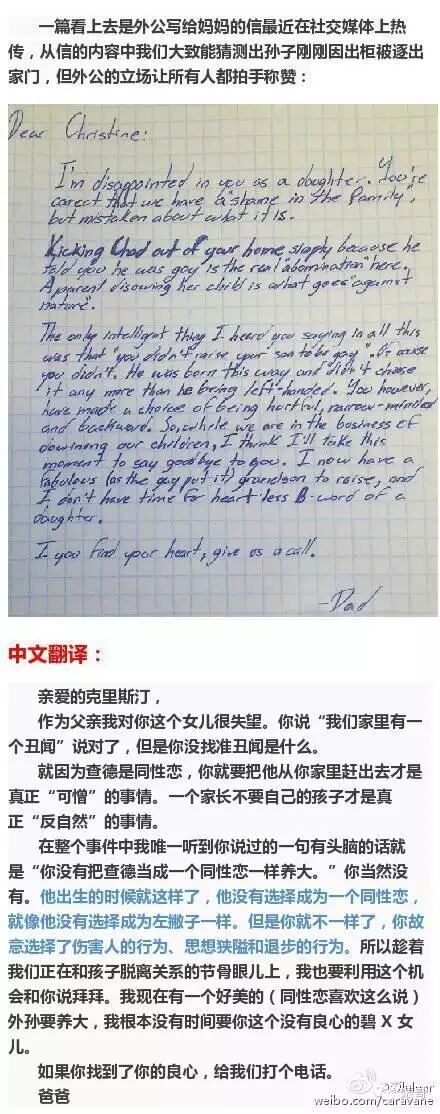 一篇看上去是外公写给妈妈的信最近在社交媒体上热
传，从信的内容中我们大致能猜测出孙子刚刚因出柜被逐出
家门，但外公的立场让所有人都拍手称赞：
Dear Christine:
I'm disappointed in you as a daughter. You're
correct that we have a "shame in the family",
but mistaken about what it is.
Kicking Chad out of your home simply because he
told you he was gay is the real "abomination" here.
A parent disowning her child is what goes "against
nature".
The only intelligent thing I heard you saying in all this
was that "you didn't raise your son to be gay". Of course
you didn't. He was born this way and didn't choose
it any more than he being left-handed. You however,
have made a choice of being hurtful, narrow-minded
and backward. So, while we are in the business of
disowning our children, I think I'll take this
moment to say goodbye to you. I now have a
fabulous (as the gay put it) grandson to raise, and
I don't have time for heart-less B-word of a
daughter.
I you find your heart, give us a call.
-Dad
中文翻译：
亲爱的克里斯汀，
作为父亲我对你这个女儿很失望。你说“我们家里有一
个丑闻”说对了，但是你没找准丑闻是什么。
就因为查德是同性恋，你就要把他从你家里赶出去才是
真正“可憎”的事情。一个家长不要自己的孩子才是真
正“反自然”的事情。
在整个事件中我唯一听到你说过的一句有头脑的话就
是“你没有把查德当成一个同性恋一样养大。”你当然没
有。他出生的时候就这样了，他没有选择成为一个同性恋，
就像他没有选择成为左撇子一样。但是你就不一样了，你故
意选择了伤害人的行为、思想狭隘和退步的行为。所以趁着
我们正在和孩子脱离关系的节骨眼儿上，我也要利用这个机
会和你说拜拜。我现在有一个好美的（同性恋喜欢这么说）
外孙要养大，我根本没有时间要你这个没有良心的碧 X 女
儿。
如果你找到了你的良心，给我们打个电话。
爸爸
weibo.com/caravane